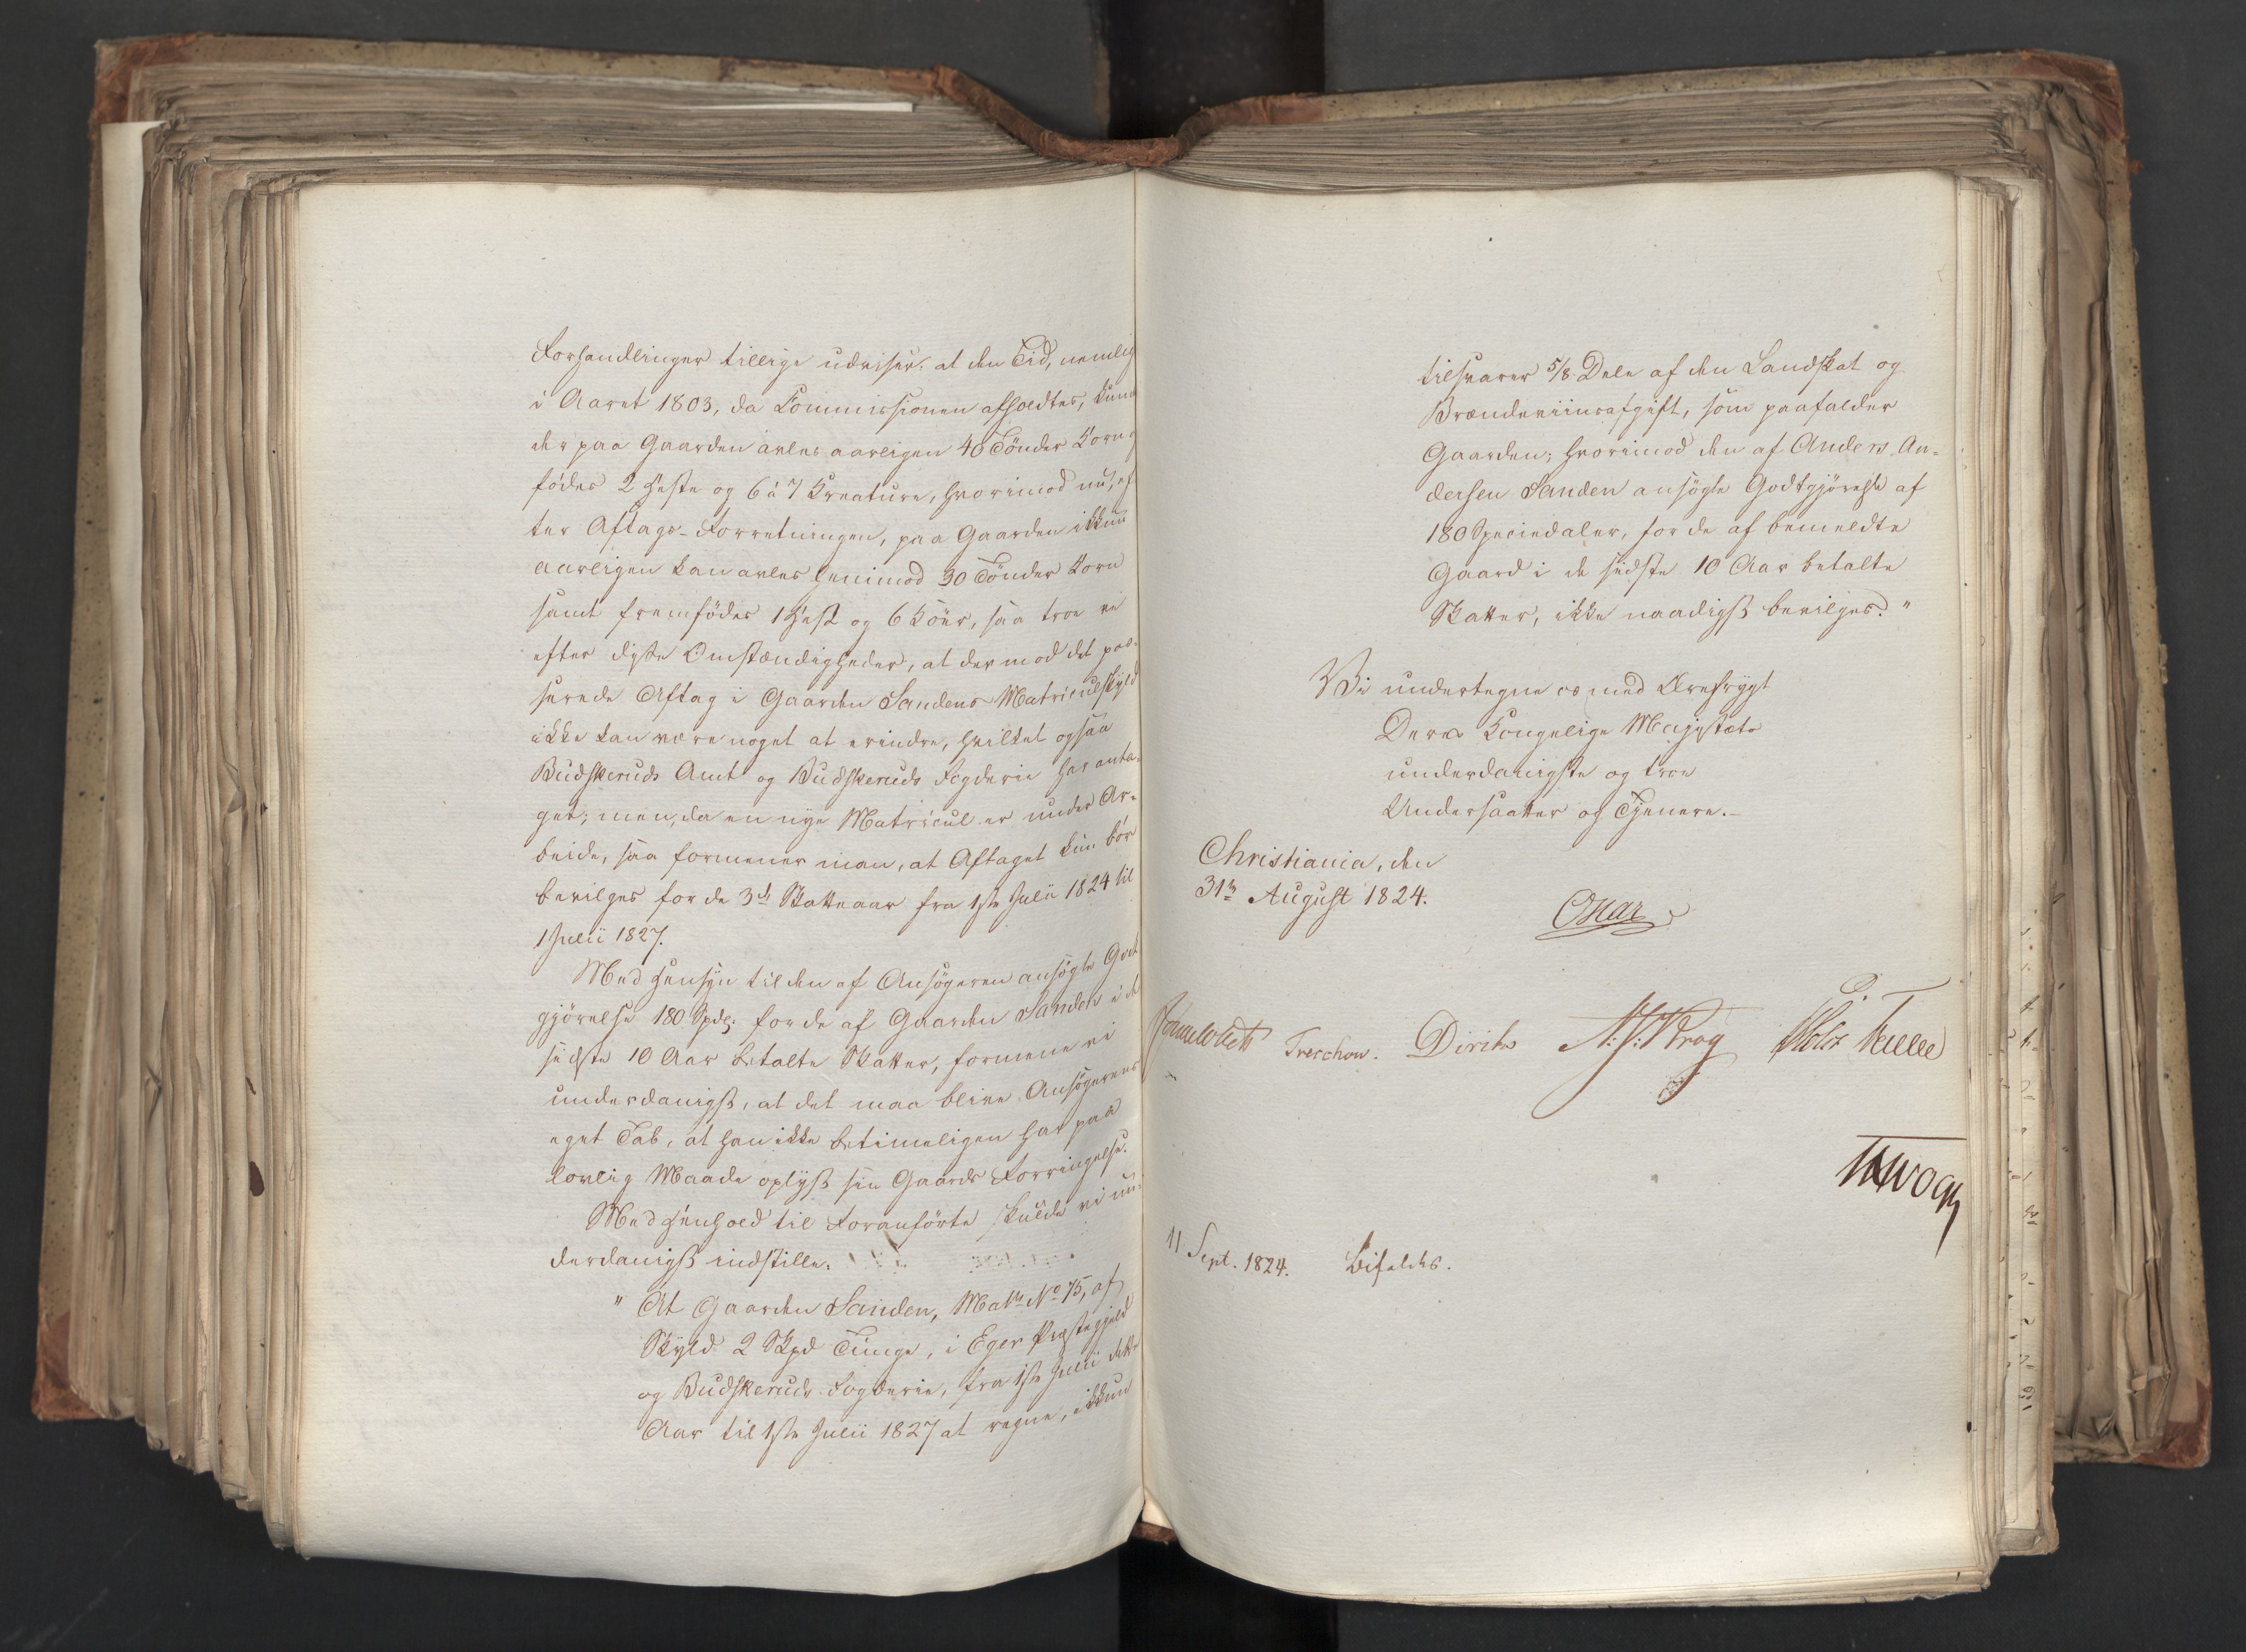 Forhandlinger tillige udviser, at den Tid, nemlig
i Aaret 1803, da Commissionen afholdtes, kunde
der paa Gaarden avles aarligen 40 Tönder Korn og
födes 2 Heste og 6 á 7 Kreature, hvorimod nu, ef
ter Aftags-Forretningen, paa Gaarden ikkun
aarligen kan avles henimod 30 Tönder Korn
samt fremfödes 1 Hest og 6 Köer, saa troe vi
efter disse Omstændigheder, at der mod det pas-
serede Aftag i Gaarden Sandens Matriculskyld
ikke kan være noget at erindre, hvilket ogsaa
Budskeruds Amt og Budskeruds Fogderie har anta-
get; men, da en nye Matricul er under Ar-
beide, saa formener man, at Aftaget kun bör
bevilges for de 3de Skatteaar fra 1ste Julii 1824 til
1 Julii 1827.
Med Hensyn til den af Ansögeren ansögte Godt
gjörelse 180 Spdlr for de af Gaarden Sanden i de
sidste 10 Aar betalte Skatter, formene vi
underdanigst, at det maa blive Ansögerens
eget Tab, at han ikke betimeligen har paa
lovlig Maade oplyst sin Gaards Forringelse.
Med Henhold til Foranförte skulde vi un-
derdanigst indstille:
" At Gaarden Sanden, Matr No 75, af
Skyld 2 Skpd Tunge, i Eger Præstegjeld
og Budskeruds Fogderie, fra 1ste Julii dette
Aar til 1ste Julii 1827 at regne, ikkun
tilsvarer 5/8 Dele af den Landskat og
Brændeviinsafgift, som paafalder
Gaarden; hvorimod den af Anders An-
dersen Sanden ansögte Godtgjörelse af
180 Speciedaler, for de af bemeldte
Gaard i de sidste 10 Aar betalte
Skatter, ikke naadigst bevilges."
Vi undertegne os med Ærefrygt
Deres Kongelige Majestæts
underdanigste og troe
Undersaatter og Tjenere.-
Christiania, den
31te August 1824.
Oscar
Sommerhielm Treschow. Diriks N: J: Krog
11 Sept. 1824. Bifaldes.